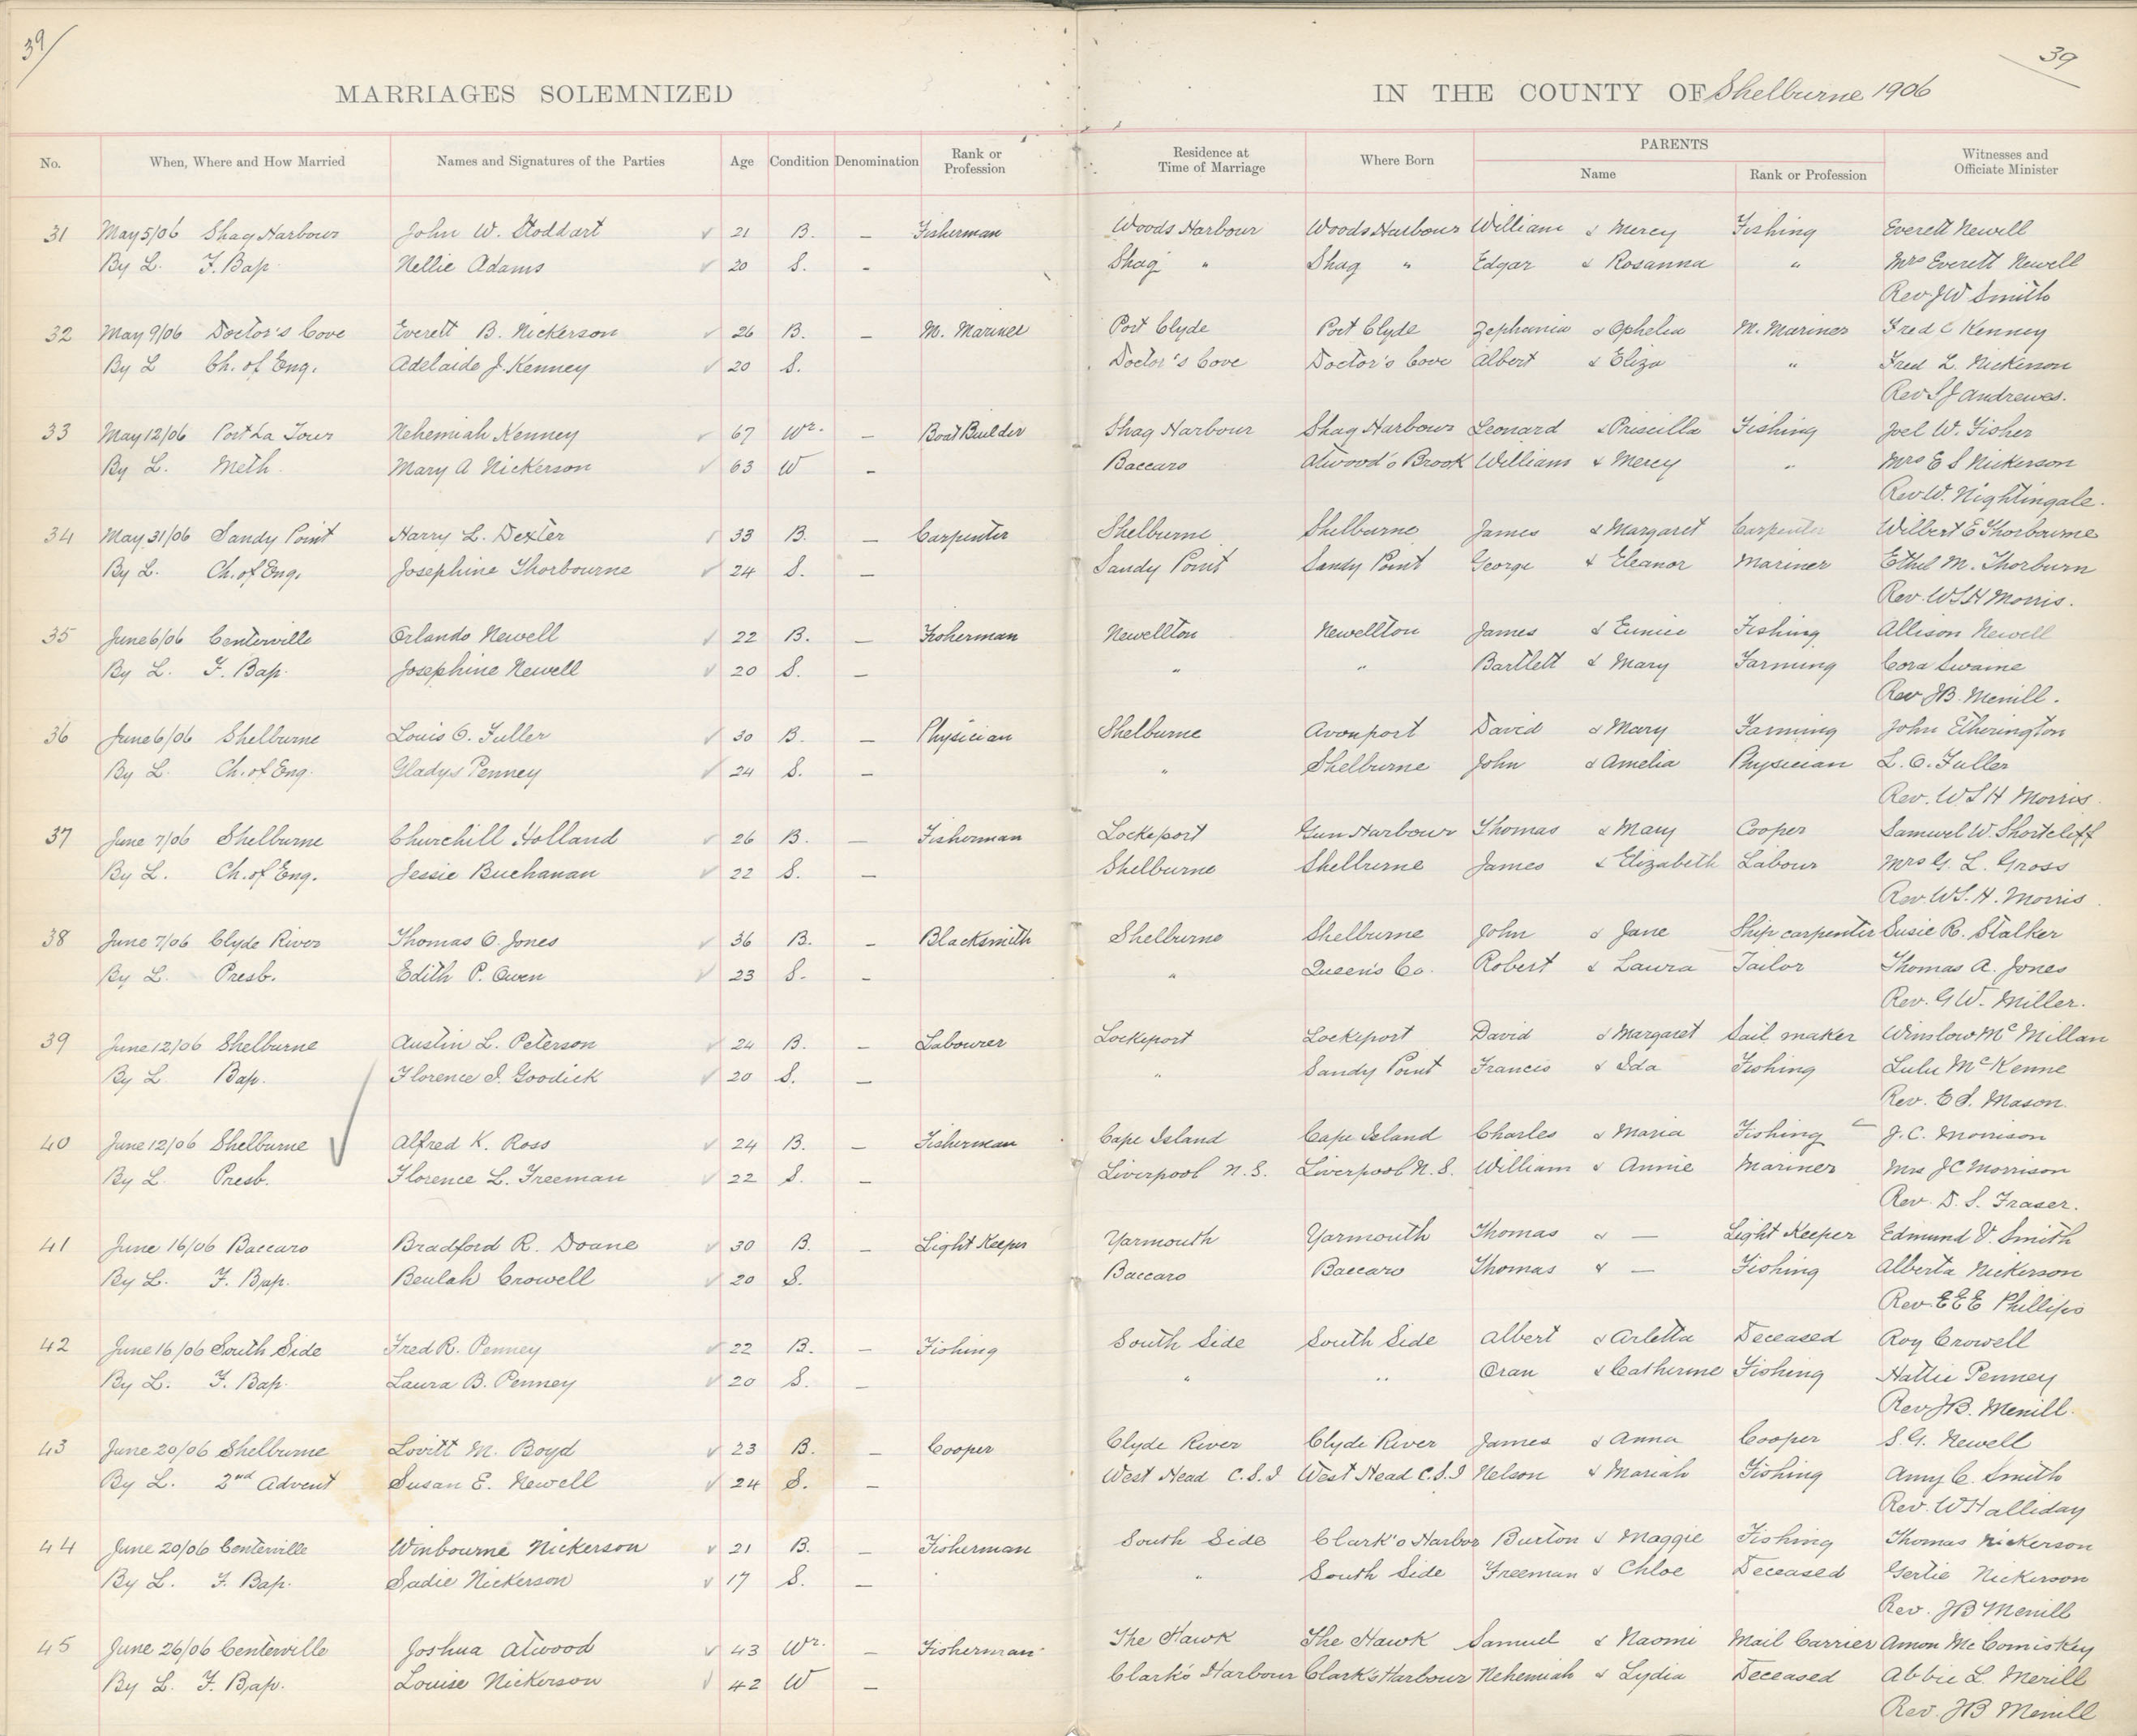 39 39
MARRIAGES SOLEMNIZED IN THE COUNTY OF Shelburne 1906
No. When, Where and How Married Names and Signatures of the Parties Age Condition Denomination Rank or Profession Residence at Time of Marriage Where Born PARENTS Name Rank or Profession Witnesses and Officiate Minister
31 May 5/06 Shag Harbour John W. Stoddart 21 B. – Fisherman Woods Harbour Woods Harbour William & Mercy Fishing Everett Newell
By L. F. Bap. Nellie Adams 20 S. – Shag " Shag " Edgar & Rosanna " Mrs Everett Newell
Rev JW Smith
32 May 9/06 Doctor's Cove Everett B. Nickerson 26 B. – M. Mariner Port Clyde Port Clyde Zephenia & Ophelia M. Mariner Fred C Kenney
By L Ch. of Eng. Adelaide J. Kenney 20 S. Doctor's Cove Doctor's Cove Albert & Eliza " Fred L. Nickerson
Rev S J Andrewes.
33 May 12/06 Port La Tour Nehemiah Kenney 67 Wr. – Boat Builder Shag Harbour Shag Harbour Leonard & Priscilla Fishing Joel W. Fisher
By L. Meth. Mary A Nickerson 63 W – Baccaro Atwood's Brook William & Mercy " Mrs E S Nickerson
Rev W. Nightingale.
34 May 31/06 Sandy Point Harry L. Dexter 33 B. – Carpenter Shelburne Shelburne James & Margaret Carpenter Wilbert E Thorbourne
By L. Ch. of Eng. Josephine Thorbourne 24 S. – Sandy Point Sandy Point George & Eleanor Mariner Ethel M. Thorburn
Rev. WSH Morris.
35 June 6/06 Centerville Orlando Newell 22 B. – Fisherman Newellton Newellton James & Eunice Fishing Allison Newell
By L. F. Bap. Josephine Newell 20 S. – " " Bartlett & Mary Farming Cora Swaine
Rev JB. Merrill.
36 June 6/06 Shelburne Louis O. Fuller 30 B. – Physician Shelburne Avonport David & Mary Farming John Etherington
By L. Ch. of Eng. Gladys Penney 24 S. – " Shelburne John & Amelia Physician L. O. Fuller
Rev. WSH Morris.
37 June 7/06 Shelburne Churchill Holland 26 B. – Fisherman Lockeport Gun Harbour Thomas & Mary Cooper Samuel W. Shortcliff
By L. Ch. of Eng. Jessie Buchanan 22 S. – Shelburne Shelburne James & Elizabeth Labour Mrs G. L. Gross
Rev. WS. H. Morris.
38 June 7/06 Clyde River Thomas O. Jones 36 B. – Blacksmith Shelburne Shelburne John & Jane Ship carpenter Susie R. Stalker
By L. Presb. Edith P. Owen 23 S. – " Queen's Co. Robert & Laura Tailor Thomas A. Jones
Rev. G W. Miller.
39 June 12/06 Shelburne Austin L. Peterson 24 B. – Labourer Lockeport Lockeport David & Margaret Sail maker Winslow Mc Millan
By L. Bap. Florence I. Goodick 20 S. – " Sandy Point Francis & Ida Fishing Lulu Mc Kenne
Rev. E S. Mason.
40 June 12/06 Shelburne Alfred K. Ross 24 B. – Fisherman Cape Island Cape Island Charles & Maria Fishing J. C. Morrison
By L. Presb. Florence L. Freeman 22 S. – Liverpool N.S. Liverpool N.S. William & Annie Mariner Mrs JC Morrison
Rev. D. S. Fraser.
41 June 16/06 Baccaro Bradford R. Doane 30 B. – Light Keeper Yarmouth Yarmouth Thomas & – Light Keeper Edmund V. Smith
By L. F. Bap. Beulah Crowell 20 S. Baccaro Baccaro Thomas & – Fishing Alberta Nickerson
Rev. E E E Phillips
42 June 16/06 South Side Fred R. Penney 22 B. – Fishing South Side South Side Albert & Arletta Deceased Roy Crowell
By L. F. Bap. Laura B. Penney 20 S. – " " Oran & Catherine Fishing Hattie Penney
Rev JB. Merrill.
43 June 20/06 Shelburne Lovitt M. Boyd 23 B. – Cooper Clyde River Clyde River James & Anna Cooper S. G. Newell
By L. 2nd Advent Susan E. Newell 24 S. – West Head C.S.I West Head C.S.I Nelson & Mariah Fishing Amy C. Smith
Rev. W Halliday
44 June 20/06 Centerville Winbourne Nickerson 21 B. – Fisherman South Side Clark's Harbor Burton & Maggie Fishing Thomas Nickerson
By L. F. Bap. Sadie Nickerson 17 S. – " South Side Freeman & Chloe Deceased Gertie Nickerson
Rev. JB Merrill
45 June 26/06 Centerville Joshua Atwood 43 Wr. – Fisherman The Hawk The Hawk Samuel & Naomi Mail Carrier Amon Mc Comiskey
By L. F. Bap. Louise Nickerson 42 W – Clark's Harbour Clark's Harbour Nehemiah & Lydia Deceased Abbie L. Merill
Rev. JB Merrill